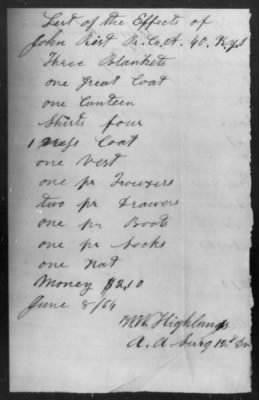 List of the Effects of
John Rist Pr. Co. A. 40. N.Y.S
Three Blankets
one Great Coat
one Canteen
Shirts four
1 Dress Coat
one Vest
one pr Trowzers
two pr Drawers
one pr Boots
one pr Socks
one Hat
Money $2,10
June 8/64
Highlands
A. A Surg